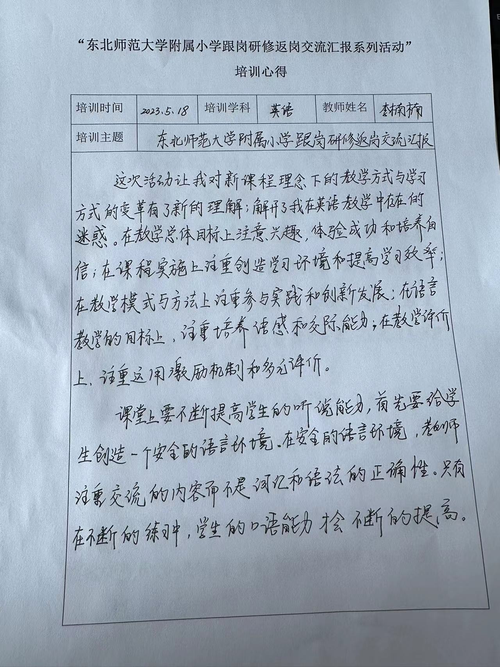 “东北师范大学附属小学跟岗研修返岗交流汇报系列活动”
培训心得
培训时间 2023.5.18 培训学科 英语 教师姓名 李楠楠
培训主题 东北师范大学附属小学跟岗研修返岗交流汇报
这次活动让我对新课程理念下的教学方式与学习
方式的变革有了新的理解;解开了我在英语教学中存在的
迷惑。在教学总体目标上注意兴趣,体验成功和培养自
信;在课程实施上注重创造学习环境和提高学习效率;
在教学模式与方法上注重参与实践和创新发展;在语言
教学的目标上,注重培养语感和交际能力;在教学评价
上,注重运用激励机制和多元评价。
课堂上要不断提高学生的听说能力,首先要给学
生创造一个安全的语言环境。在安全的语言环境,老师
注重交流的内容而不是词汇和语法的正确性。只有
在不断的练习中,学生的口语能力才会不断的提高。